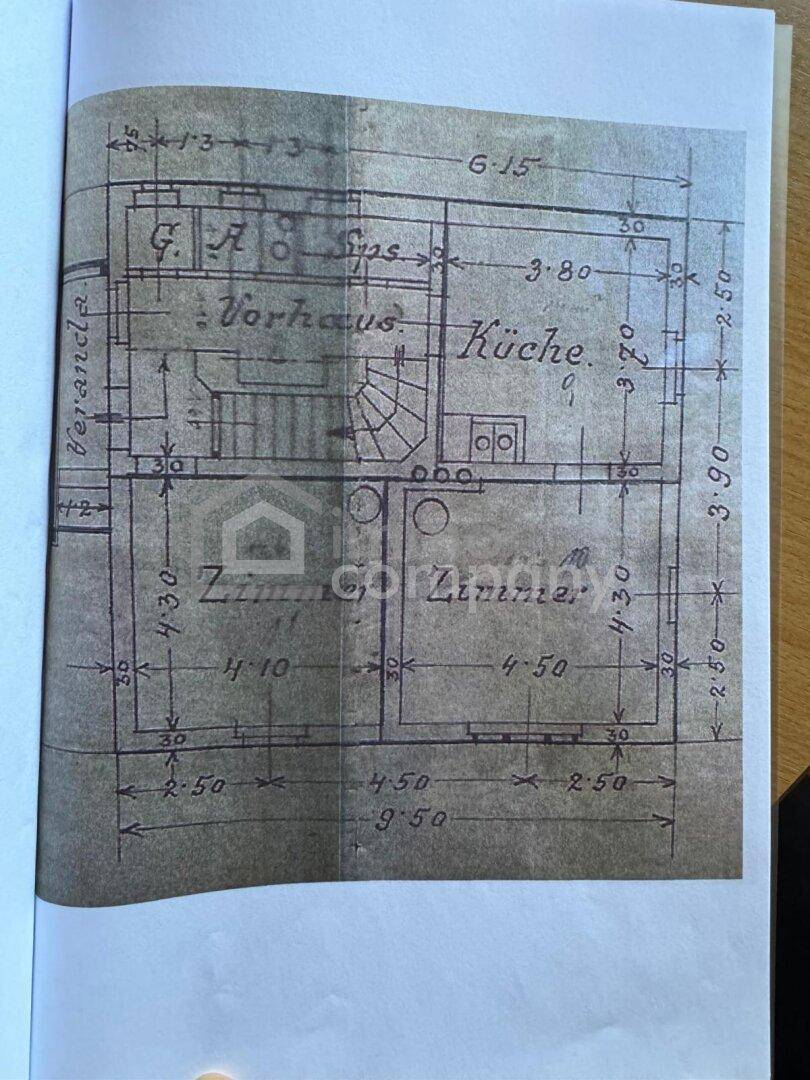 75
1·3
1·3
6·15
G.
A
Sps
30
30
3·80
30
2·50
Vorhaus.
Küche.
3·70
Veranda.
30
30
3·90
12
immo
company
Zimmer
Zimmer
4·30
4·30
30
4·10
30
4·50
30
2·50
30
30
2·50
4·50
2·50
9·50